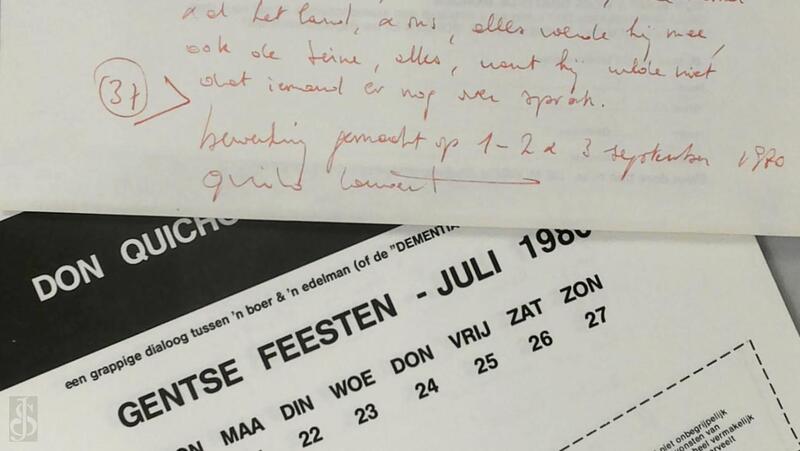 al het land, & ons, alles wende hij mee,
ook de Seine, alles, want hij wilde niet
37
dat iemand er nog over sprak.
bewerking gemaakt op 1-2 & 3 september 1970
DON QUICHO
een grappige dialoog tussen 'n boer & 'n edelman (of de "DEMENTIA
GENTSE FEESTEN - JULI 198
ON MAA DIN WOE DON VRIJ ZAT ZON
22 23 24 25 26 27
niet onbegrijpelijk
onsten van
heel vermakelijk
erveelt